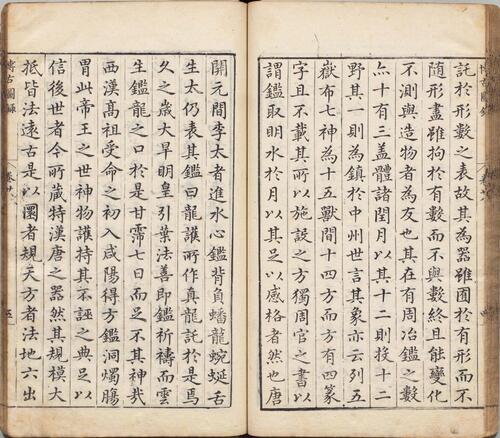 託於形數之表故其為器雖囿於有形而不
隨形盡雖拘於有數而不與數終且能變化
不測與造物者為友也其在有周冶鑑之數
亦十有三盖體諸閏月以其十二則投十二
野其一則為鎮於中州世言其象亦云列五
嶽布七神為十五獸間十四方而方有四篆
字且不載其所以施設之方獨周官之書所
謂鑑取明水於月以其足以感格者然也唐
開元間李太者進水心鑑背負蟠龍蜿蜒舌
生太仍表其鑑曰龍護所作真龍託於是焉
久之歲大旱明皇引葉法善即鑑祈禱而雲
生鑑龍之口於是甘霈七日而足不其神哉
西漢高祖受命之初入咸陽得方鑑洞燭腸
胃此帝王之世神物護持其不誣之典足以
信後世者今所蔵特漢唐之器然其規模大
抵皆法遠古是以圜者規天方者法地六出
博古圖錄
卷廿八
五